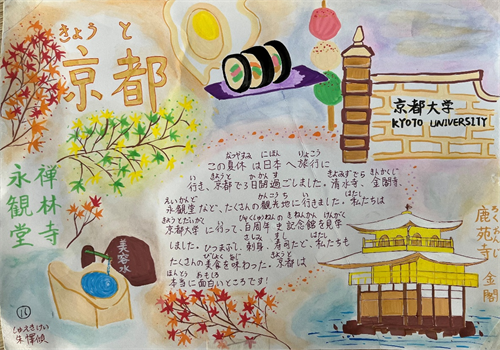 きょうと
京都
京都大学
KYOTO UNIVERSITY
なつやすみ にほん りょこう
この夏休は日本へ旅行に
い きょうと かかん す きよみずでら きんかくじ
行き、京都で3日間過ごしました。清水寺、金閣寺、
えいかんどう かんこうち い わたし
永観堂など、たくさんの観光地に行きました。私たちは
きょうとだいがく い きねんかん けんがく
京都大学に行って、百周年史記念館を見学
さしみ すし わたし
しました。ひつまぶし、刺身、寿司など、私たちも
びしょく あじ きょうと
たくさんの美食を味わった。京都は
ほんとう おもしろ
本当に面白いところです!
禅林寺
永観堂
美容水
鹿苑寺 金閣
16